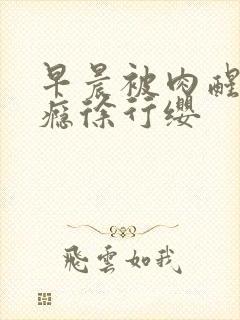 早晨被肉醒
瘾徐行缨
飛雲如我